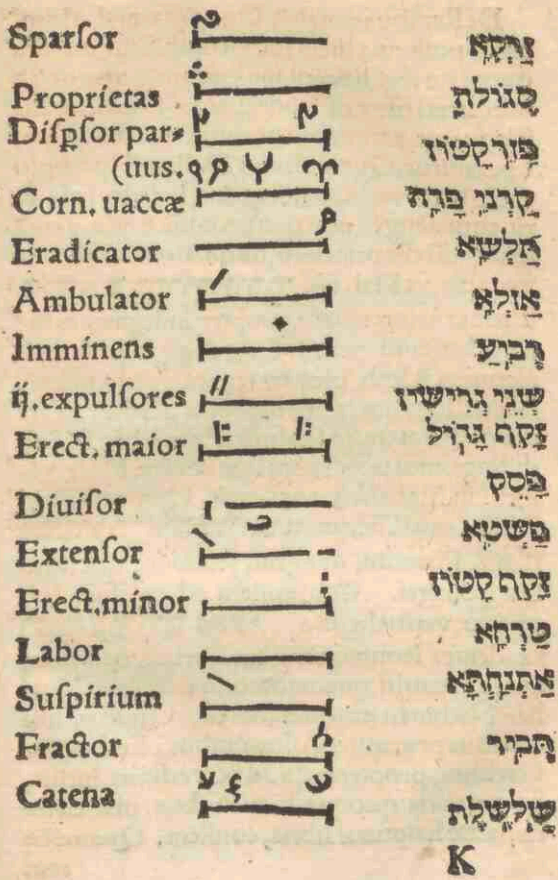 Sparſor זַרְקָא
Proprietas סְגוֹלתָ
Diſpſor par⸗ פָּזֵר קָטוֹן
(uus.
Corn. uaccæ קַרְנֵי פָרָה
Eradicator תַּלְשָא
Ambulator אַזְלָא
Imminens רְבִיעַ
ij. expulſores שְׁנֵי גְרִישִׁין
Erect. maior זָקֵף גָּדוֹל
Diuiſor פָּסֵק
Extenſor פַּשְׁטָא
Erect. minor זָקֵף קָטוֹן
Labor טַרְחָא
Suſpirium אֶתְנַחְתָּא
Fractor תְּבִיר
Catena שַׁלְשֶׁלֶת
K